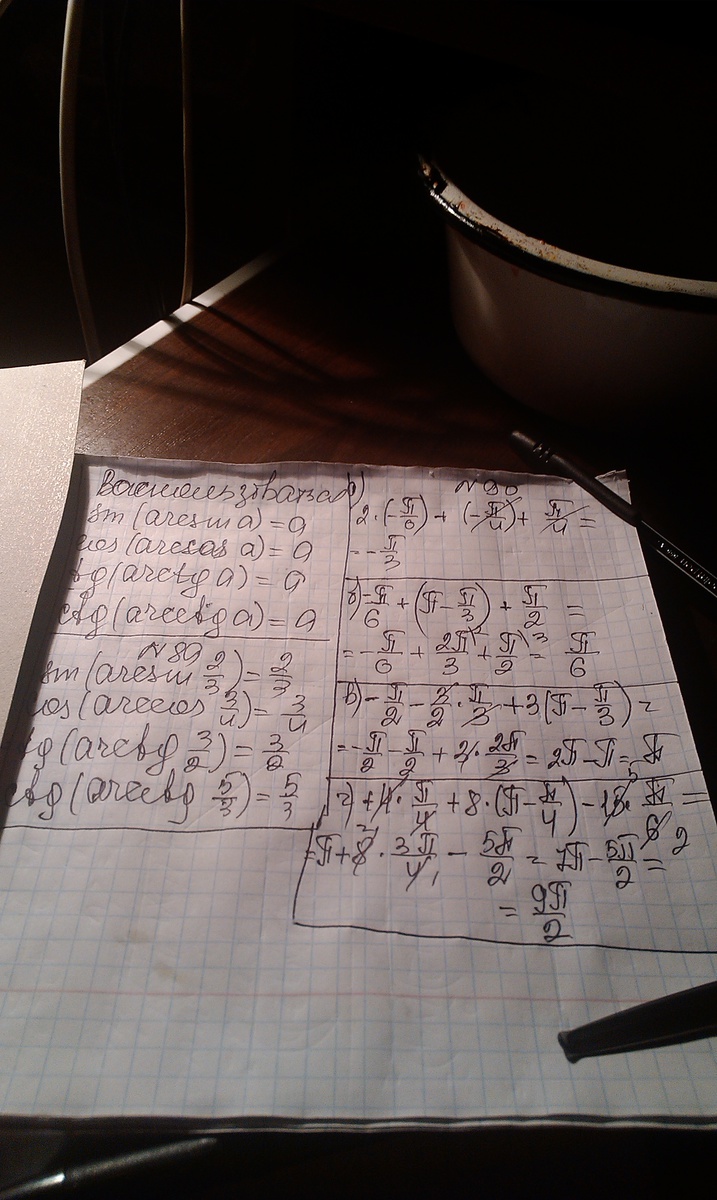 Воспользоваться
sin (arcsin a) = a
cos (arccos a) = a
tg (arctg a) = a
ctg (arcctg a) = a
N 89
sin (arcsin 2/3) = 2/3
cos (arccos 3/4) = 3/4
tg (arctg 3/2) = 3/2
ctg (arcctg 5/3) = 5/3
N 90
2·(-π/6) + (-π/4) + π/4 =
= -π/3
б) -π/6 + (π - π/3) + π/2 =
= -π/6 + 2π/3 + π/2 = π/6
в) -π/2 - 3/2 · π/3 + 3(π - π/3) =
= -π/2 - π/2 + 3 · 2π/3 = 2π - π = π
г) +4 · π/4 + 8 · (π - π/4) - 15 · π/6 =
= π + 8 · 3π/4 - 5π/2 = 7π - 5π/2 =
= 9π/2